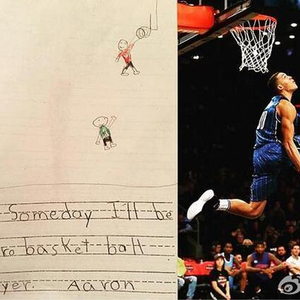 Someday I'll be
ro basket ball
yer. Aaron